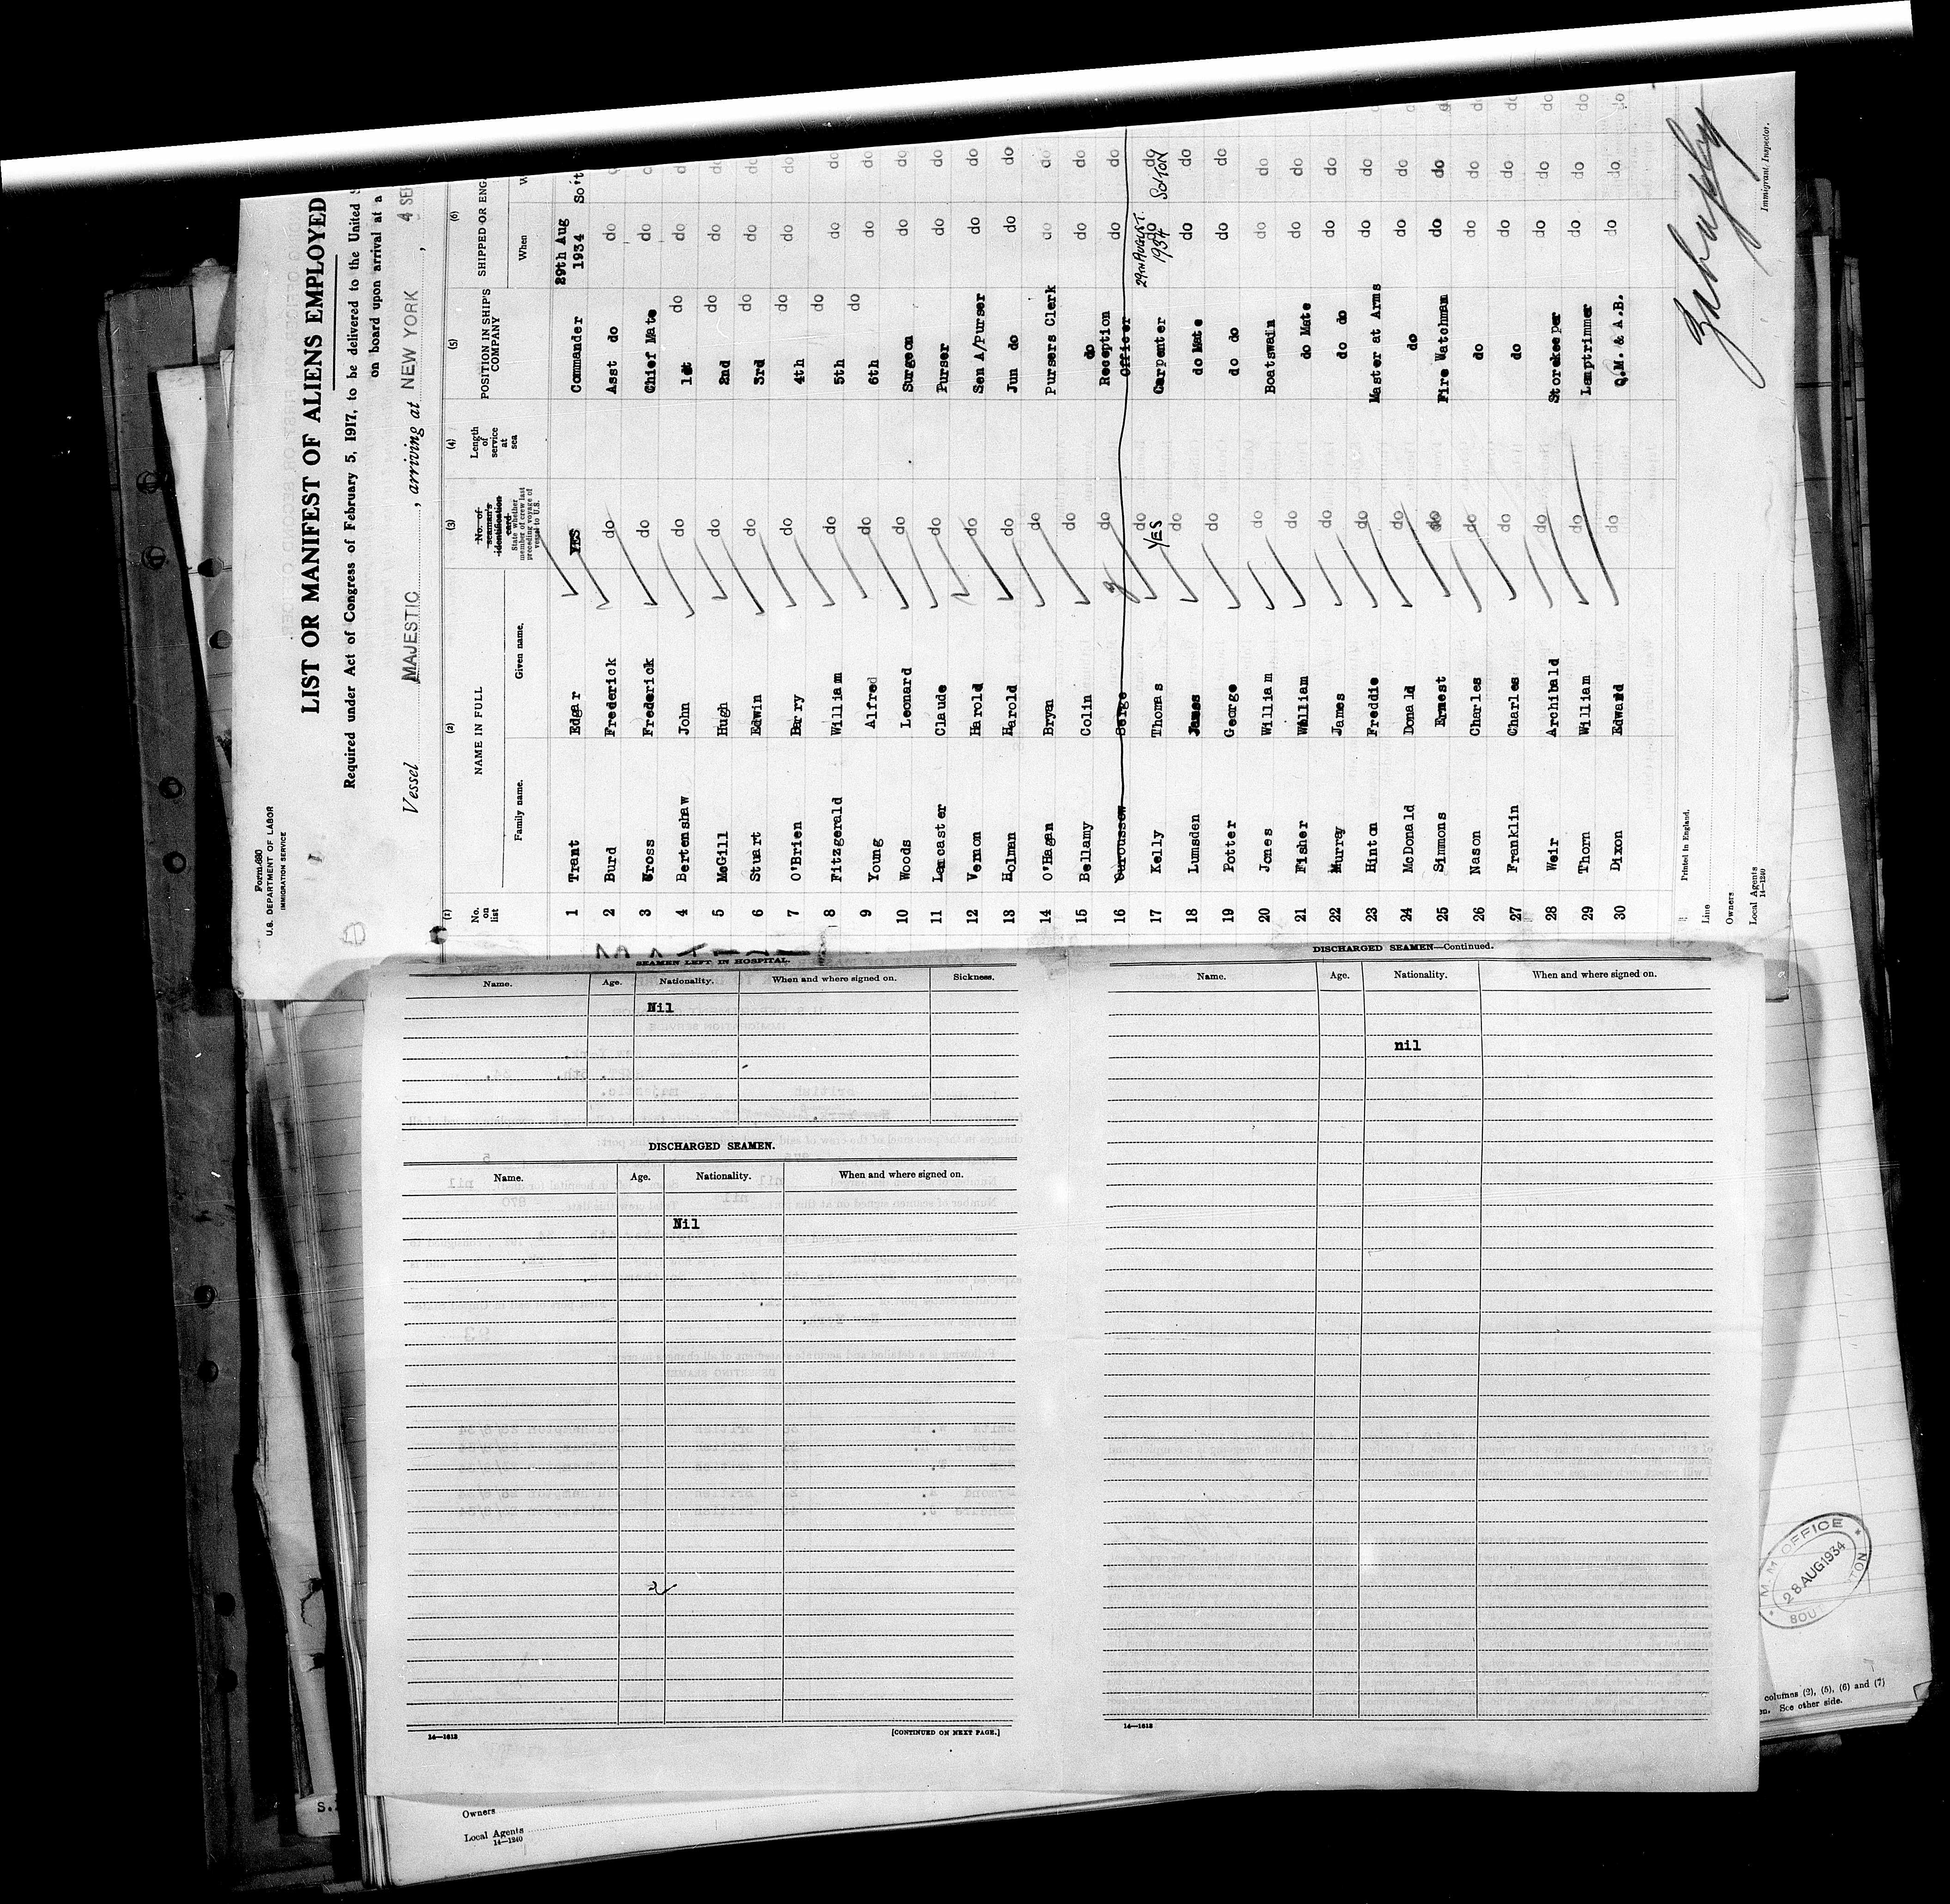 Form 680
U.S. DEPARTMENT OF LABOR
IMMIGRATION SERVICE
LIST OR MANIFEST OF ALIENS EMPLOYED
Required under Act of Congress of February 5, 1917, to be delivered to the United
on board upon arrival at a
Vessel MAJESTIC, arriving at NEW YORK, 4 SEP
(1) (2) (3) (4) (5) (6)
No. on list NAME IN FULL No. of seaman's identification card State whether member of crew last preceding voyage of vessel to U.S. Length of service at sea POSITION IN SHIP'S COMPANY SHIPPED OR ENG
Family name. Given name. When W
1 Trant Edgar YES Commander 29th Aug 1934 So't
2 Burd Frederick do Asst do do d
3 Cross Frederick do Chief Mate do d
4 Bertenshaw John do 1st do do d
5 McGill Hugh do 2nd do do do
6 Stuart Edwin do 3rd do do do
7 O'Brien Harry do 4th do do do
8 Fitzgerald William do 5th do do do
9 Young Alfred do 6th do do do
10 Woods Leonard do Surgeon do do
11 Lancaster Claude do Purser do do
12 Vernon Harold do Sen A/Purser do do
13 Holman Harold do Jun do do do
14 O'Hagan Bryan do Pursers Clerk do do
15 Bellamy Colin do do do do
16 Ouroussow Serge do Reception Officer do do
17 Kelly Thomas do YES Carpenter do 29TH AUGUST. 1934 do SOTON
18 Lumsden James do do Mate do do
19 Potter George do do do do do
20 Jones William do Boatswain do do
21 Fisher William do do Mate do do
22 Murray James do do do do do
23 Hinton Freddie do Master at Arms do do d
24 McDonald Donald do do do do d
25 Simmons Ernest do Fire Watchman do do do
26 Nason Charles do do do do do
27 Franklin Charles do do do do do
28 Weir Archibald do Storekeeper do do do
29 Thorn William do Lamptrimmer do do do
30 Dixon Edward do Q.M. & A.B. do do do
Printed in England.
Line
Owners
Local Agents
14—1240
Immigrant Inspector.
SEAMEN LEFT IN HOSPITAL.
Name. Age. Nationality. When and where signed on. Sickness.
Nil
DISCHARGED SEAMEN.
Name. Age. Nationality. When and where signed on.
Nil
14—1613 [CONTINUED ON NEXT PAGE.]
DISCHARGED SEAMEN—Continued.
Name. Age. Nationality. When and where signed on.
nil
14—1613
M. M. OFFICE
28 AUG 1934
SOU TON
columns (2), (5), (6) and (7)
en. See other side.
S.
Owners
Local Agents
14—1240